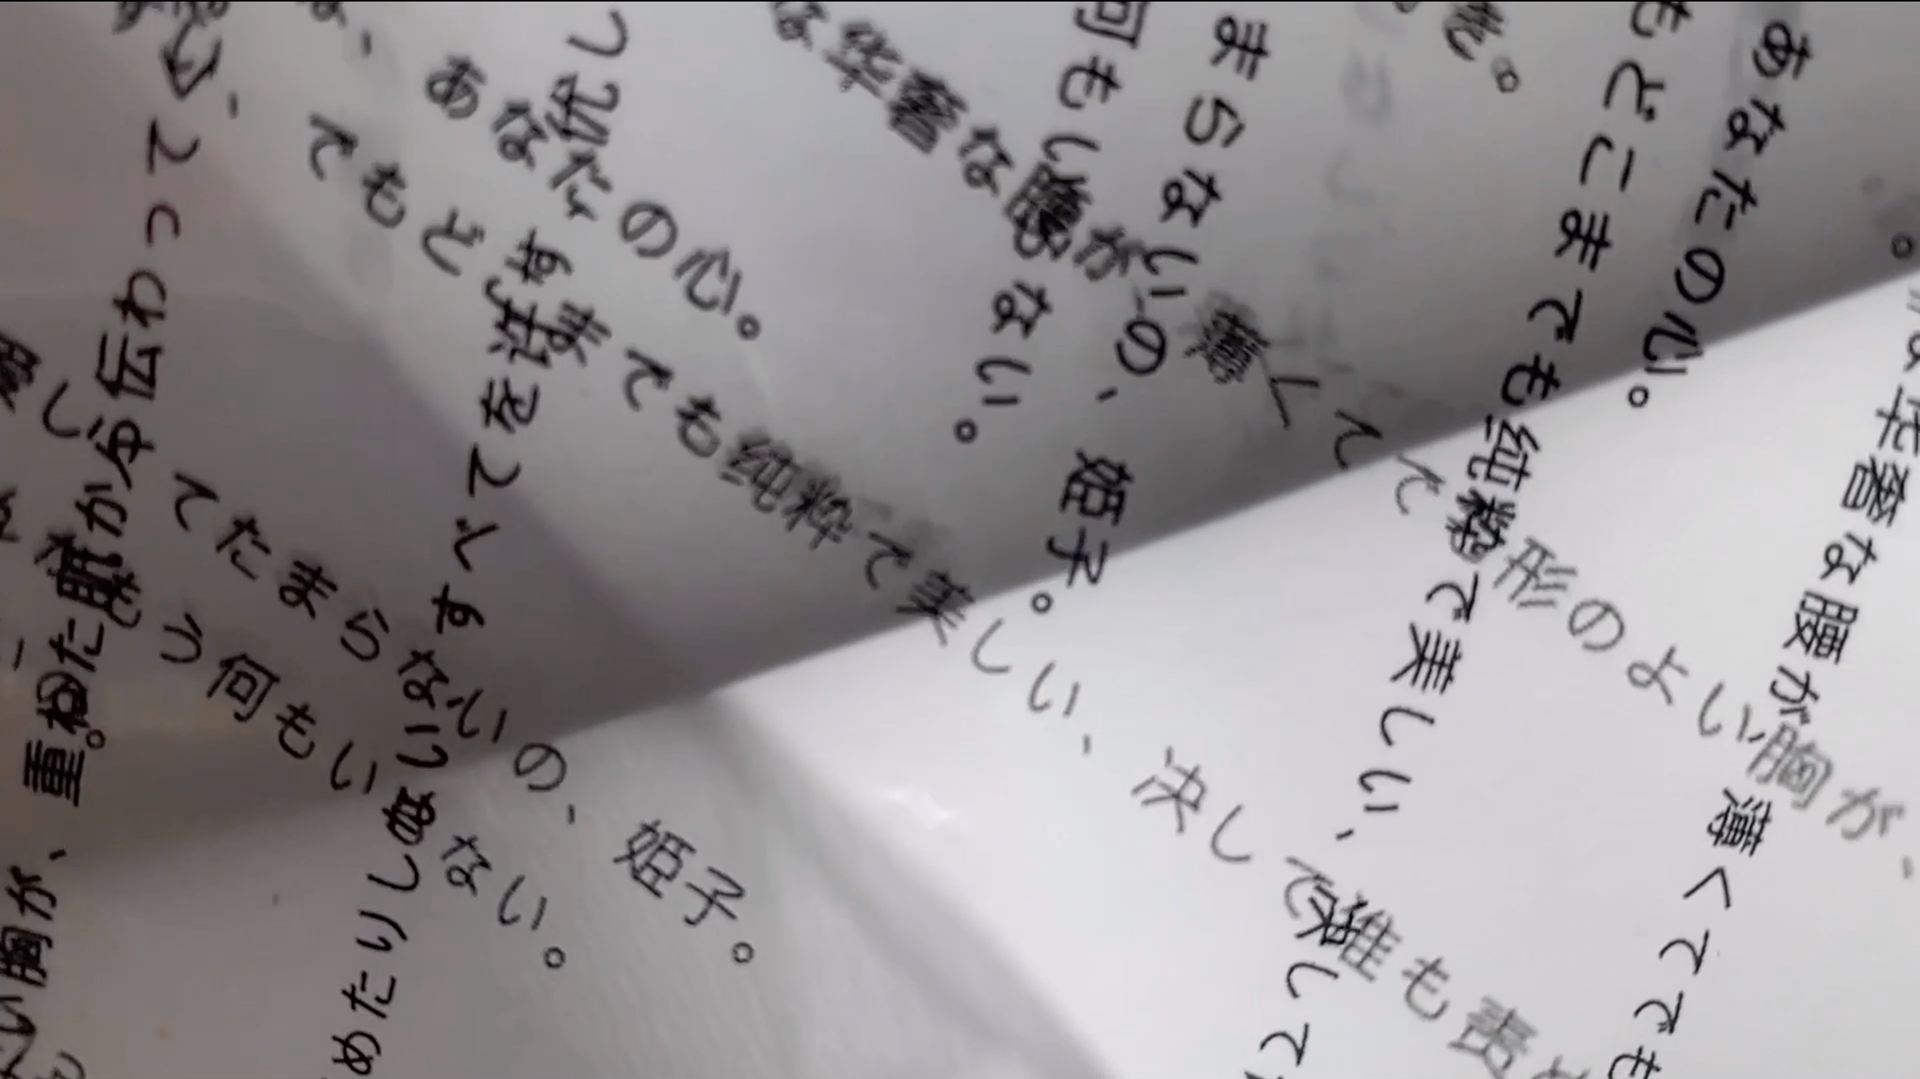 は华奢な腰が、薄くてで
形のよい胸が、
あなたの心。
でもどこまでも纯粋で美しい、決して誰も責め
してたまらないの、姫子。
もう何もいらない。
い胸が、重ねた肌から伝わって
めたりしない、すべてを许す优し
何もいらない。
まらないの、姫子。
もどこまでも纯粋で美しい、決して
あなたの心。
は华奢な腰が、薄くてでも